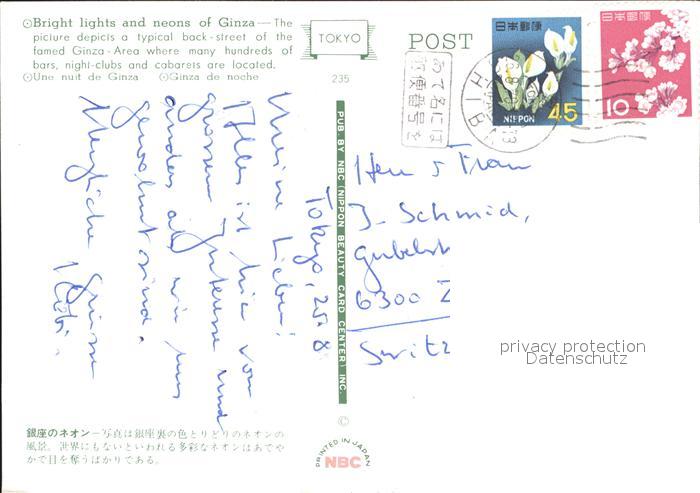 Bright lights and neons of Ginza — The
picture depicts a typical back-street of the
famed Ginza-Area where many hundreds of
bars, night-clubs and cabarets are located.
Une nuit de Ginza Ginza de noche
TOKYO
235
POST
日本郵便
NIPPON 45
日本郵便
10
あて名には
郵便番号を
PUB. BY NBC (NIPPON BEAUTY CARD CENTER) INC.
Tokyo, 25.8
Meine Lieben!
Alles ist hier von
grossem Interesse und
anders als wir uns
gewohnt sind.
Herzliche Grüsse
Herr & Frau
J. Schmid,
Gubelst
6300 Z
Switz
privacy protection
Datenschutz
銀座のネオン—写真は銀座裏の色とりどりのネオンの
風景。世界にもないといわれる多彩なネオンはあでや
かで目を奪うばかりである。
©
PRINTED IN JAPAN
NBC